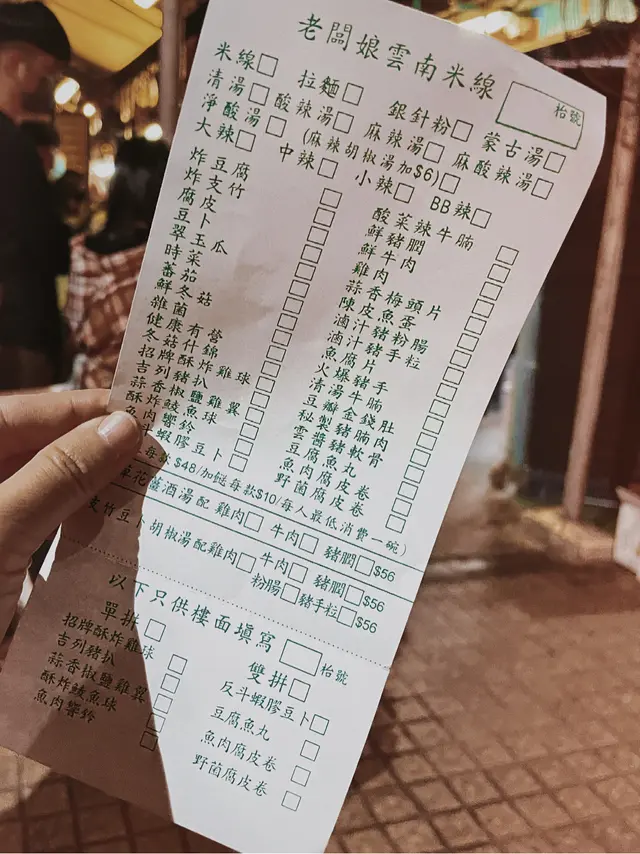 老闆娘雲南米線
枱號
米線 拉麵 銀針粉 蒙古湯
清湯 酸辣湯 麻辣湯 麻酸辣湯
淨酸湯 (麻辣胡椒湯加$6)
大辣 中辣 小辣 BB辣
炸豆腐
炸支竹
腐皮
豆卜
翠玉瓜
時菜
番茄
鮮冬菇
雜菌
健康有營
冬菇什錦
招牌酥炸雞球
吉列豬扒
蒜香椒鹽雞翼
酥炸鯪魚球
魚肉響鈴
反斗蝦膠豆卜
酸菜辣牛腩
鮮豬膶
鮮牛肉
雞肉
蒜香梅頭片
陳皮魚蛋
滷汁豬粉腸
滷汁豬手粒
魚腐片
火爆豬手
清湯牛腩
豆瓣金錢肚
秘製豬腩肉
雲醬豬軟骨
豆腐魚丸
魚肉腐皮卷
野菌腐皮卷
每款$48/加餸每款$10/每人最低消費一碗)
草花薑酒湯配 雞肉 牛肉 豬膶$56
支竹豆卜胡椒湯配雞肉 牛肉 豬膶$56
粉腸 豬手粒$56
以下只供樓面填寫 枱號
單拼
招牌酥炸雞球
吉列豬扒
蒜香椒鹽雞翼
酥炸鯪魚球
魚肉響鈴
雙拼
反斗蝦膠豆卜
豆腐魚丸
魚肉腐皮卷
野菌腐皮卷